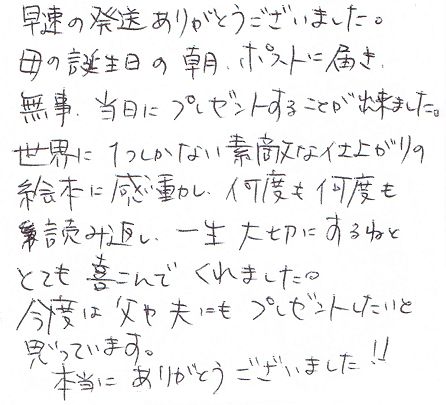 早速の発送ありがとうございました。
母の誕生日の朝、ポストに届き、
無事、当日にプレゼントすることが出来ました。
世界に1つしかない素敵な仕上がりの
絵本に感動し、何度も何度も
読み返し、一生大切にするねと
とても喜こんでくれました。
今度は父や夫にもプレゼントしたいと
思っています。
本当にありがとうございました!!